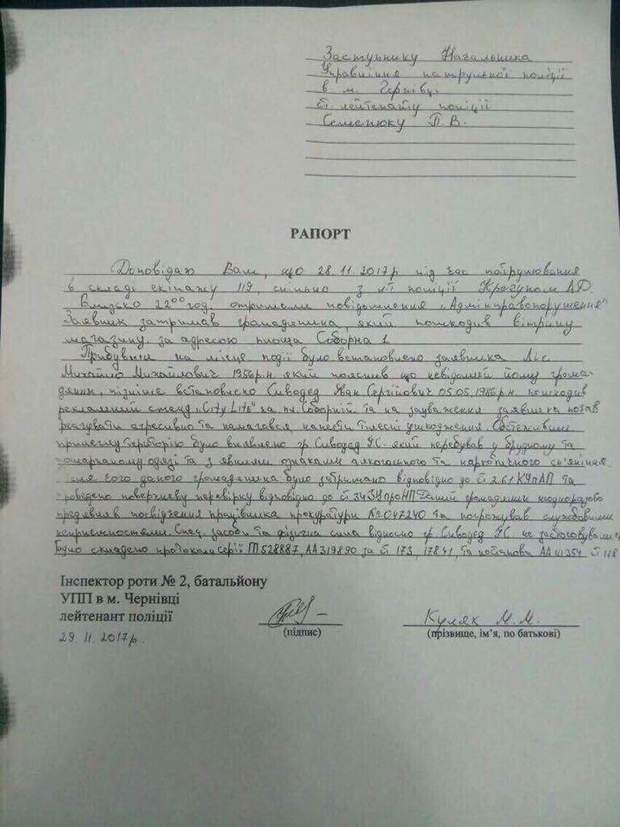 Заступнику Начальника
Управління патрульної поліції
в м. Чернівці
ст. лейтенанту поліції
Семенюку П.В.
РАПОРТ
Доповідаю Вам, що 28.11.2017р під час патрулювання
в складі екіпажу 119, спільно з к-л поліції А.Р.
Близько 22⁰⁰ год. отримали повідомлення "Адмінправопорушення"
Заявник затримав громадянина, який пошкодив вітрину
магазину за адресою площа Соборна 1
Прибувши на місце події було встановлено заявника Ліс
Михайло Михайлович 1956р.н. який пояснив що невідомий йому грома-
дянин, пізніше встановлено Сиводед Іван Сергійович 05.05.1986р.н. пошкодив
рекламний стенд "City Life" на пл. Соборній та на зауваження заявника почав
реагувати агресивно та намагався нанести тілесні ушкодження Обстеживши
прилеглу територію було виявлено гр. Сиводед І.С. який перебував у брудному та
пошарпаному одязі та з явними ознаками алкогольного та наркотичного сп'яніння
чого даного громадянина було затримано відповідно до ст. 261 КУпАП та
проведено поверхневу перевірку відповідно до ст 34 ЗУ про НП Даний громадянин неодноразово
предявляв посвідчення працівника прокуратури № 047240 та погрожував службовими
неприємностями. Спец. засоби та фізична сила відносно гр. Сиводед І.С. не застосовувались
Було складено протоколи серії 528887, АА319890 за ст. 173, 178 ч1, та постанова АА ст
Інспектор роти № 2, батальйону
УПП в м. Чернівці
лейтенант поліції
29.11.2017р.
(підпис)
Куляк М.М.
(прізвище, ім'я, по батькові)